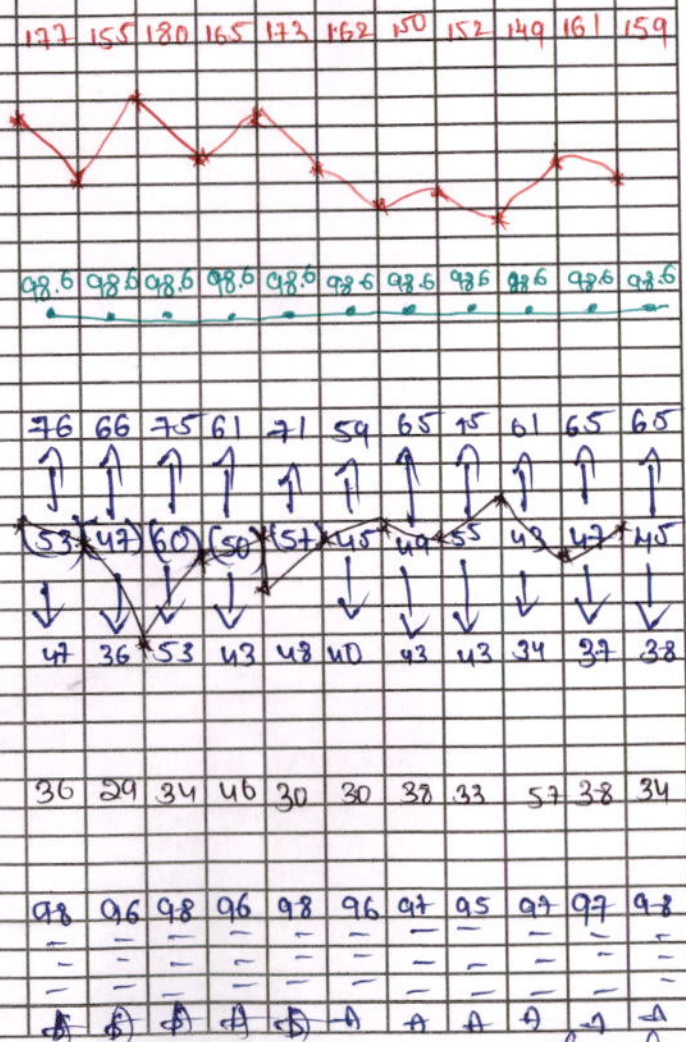 177 155 180 165 173 162 150 152 149 161 159
98.6 98.6 98.6 98.6 98.6 98.6 98.6 98.6 98.6 98.6 98.6
76 66 75 61 71 59 65 75 61 65 65
(53) (47) (60) (50) (57) 45 49 55 43 47 45
47 36 53 43 48 40 43 43 34 37 38
36 29 34 46 30 30 38 33 57 38 34
98 96 98 96 98 96 97 95 97 97 98
- - - - - - - - - - -
- - - - - - - - - - -
- - - - - - - - - - -